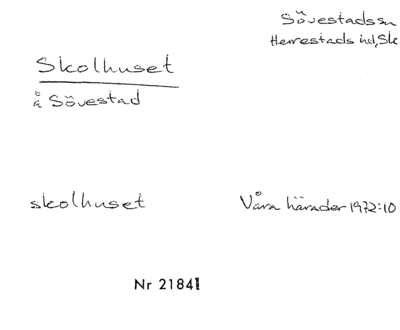 Sövestads sn
Herrestads hd, Sk
Skolhuset
å Sövestad
skolhuset
Våra härader 1972:10
Nr 21841